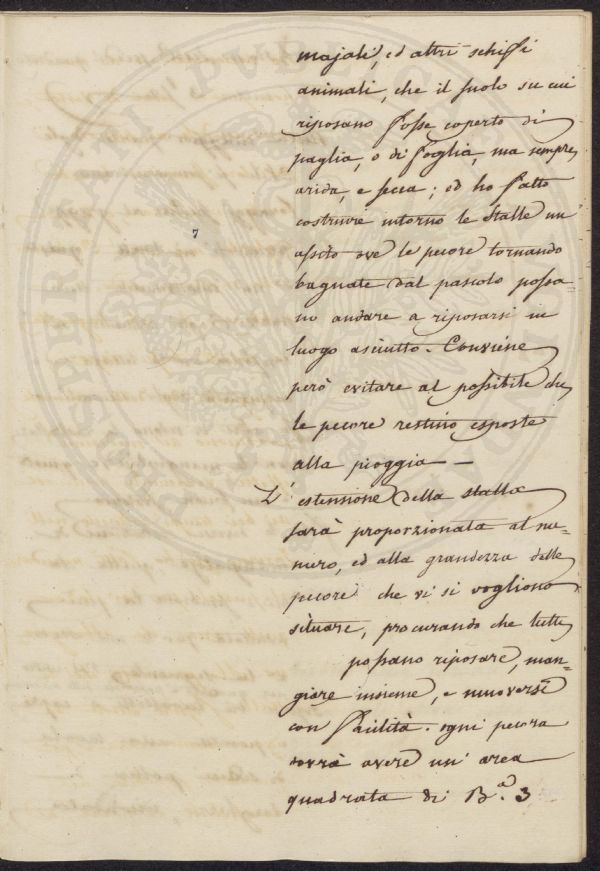 majali, ed altri schifsi
animali, che il suolo su cui
riposano fosse coperto di
paglia, o di foglia, ma sempre
arida, e secca; ed ho fatto
costruire intorno le stalle un
assito ove le pecore tornando
bagnate dal pascolo possa=
no andare a riposarsi in
luogo asciutto. Conviene
però evitare al possibile che
le pecore restino esposte
alla pioggia —
L'estensione della stalla
sarà proporzionata al nu=
mero, ed alla grandezza delle
pecore che vi si vogliono
situare, procurando che tutte
possano riposare, man=
giare insieme, e muoversi
con facilità. ogni pecora
dovrà avere un' area
quadrata di B.a 3
7